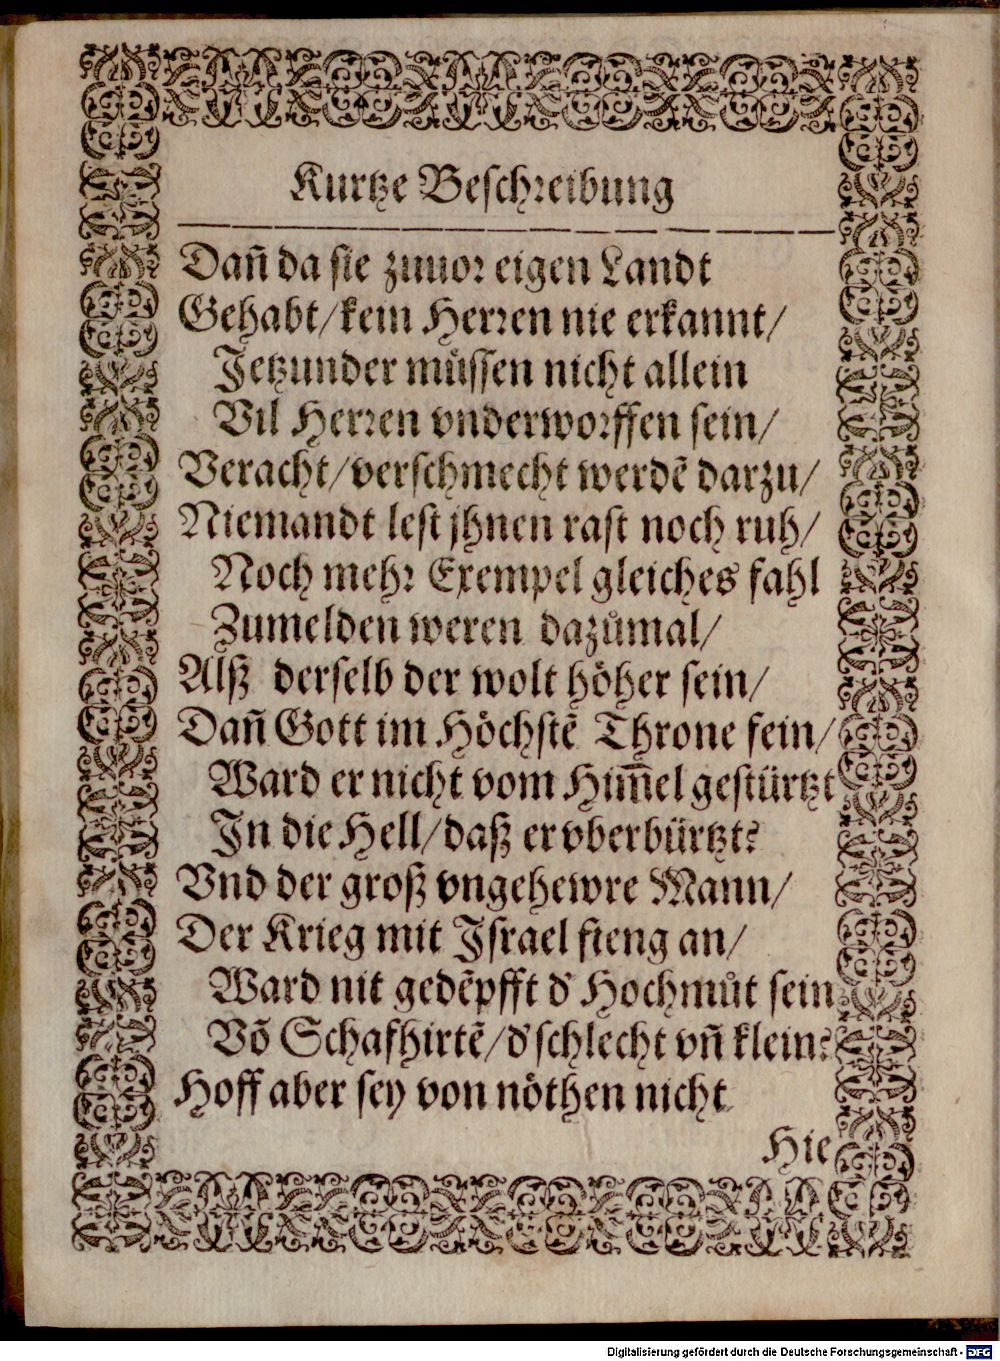 Kurtze Beschreibung
Dañ da sie zuuor eigen Landt
Gehabt/kein Herren nie erkannt/
Jetzunder müssen nicht allein
Vil Herren vnderworffen sein/
Veracht/verschmecht werdẽ darzu/
Niemandt lest jhnen rast noch ruh/
Noch mehr Exempel gleiches fahl
Zumelden weren dazůmal/
Alß derselb der wolt höher sein/
Dañ Gott im Höchstẽ Throne fein/
Ward er nicht vom Him̃el gestürtzt
In die Hell/daß er vberbürtzt?
Vnd der groß vngehewre Mann/
Der Krieg mit Israel fieng an/
Ward nit gedẽpfft d' Hochmůt sein
Võ Schafhirtẽ/d' schlecht vñ klein?
Hoff aber sey von nöthen nicht
Hie
Digitalisierung gefördert durch die Deutsche Forschungsgemeinschaft - DFG